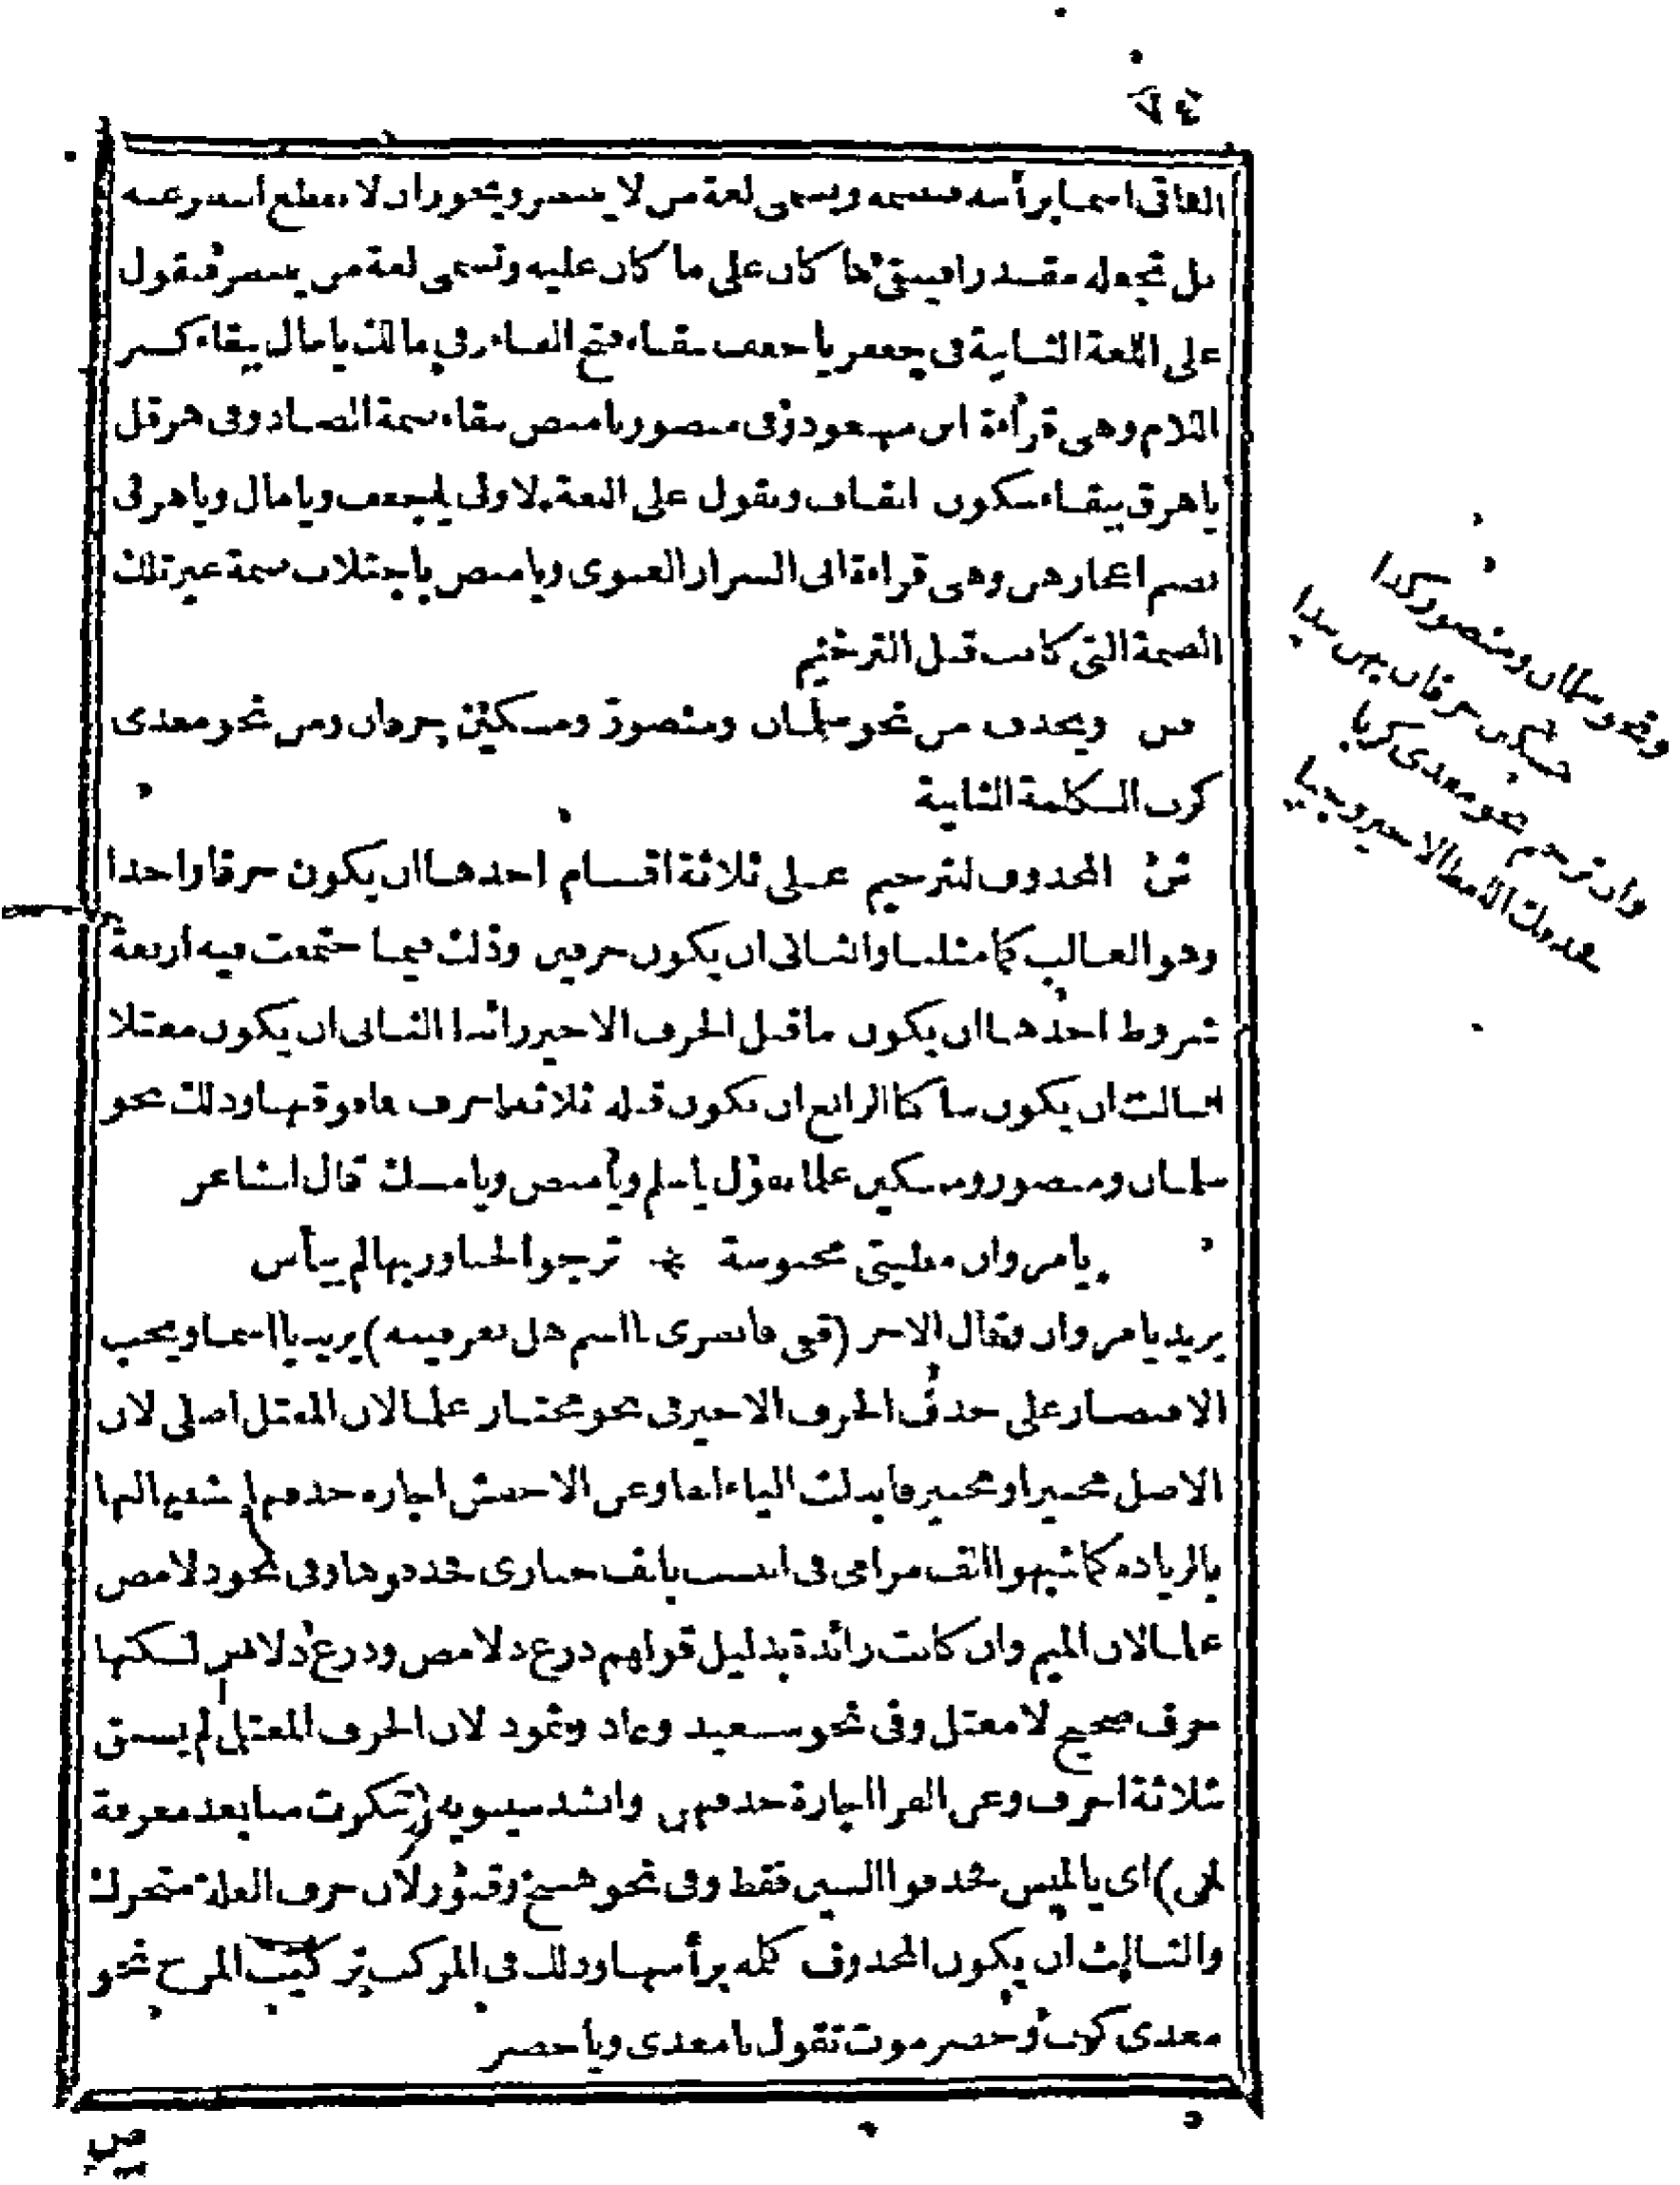 ٧٤
الباقى اسما برأسه فتضمه ويسمى لغة من لا ينتظر ويجوز ان لا تقطع النظر عنه
بل تجعله مقدرا فيبقى على ما كان عليه وتسمى لغة من ينتظر فتقول
على اللغة الثانية فى جعفر يا جعف ببقاء فتح الفاء وفى مالك يا مال ببقاء كسر
اللام وهى قراءة ابن مسعود وفى منصور يا منص ببقاء ضمة الصاد وفى هرقل
يا هرق ببقاء سكون القاف وتقول على اللغة الاولى يا جعف ويا مال ويا هرق
بضم اعجازهن وهى قراءة ابى السرار الغنوى ويا منص باجتلاب ضمة غير تلك
الضمة التى كانت قبل الترخيم
ص ويحذف من نحو سلمان ومنصور ومسكين حرفان ومن نحو معدى
كرب الكلمة الثانية
ش المحذوف للترخيم على ثلاثة اقسام احدها ان يكون حرفا واحدا
وهو الغالب كما مثلنا والثانى ان يكون حرفين وذلك فيما اجتمعت فيه اربعة
شروط احدها ان يكون ما قبل الحرف الاخير زائدا الثانى ان يكون معتلا
الثالث ان يكون ساكنا الرابع ان يكون قبله ثلاثة احرف فما فوقها وذلك نحو
سلمان ومنصور ومسكين علما تقول يا سلم ويا منص ويا مسك قال الشاعر
يا مرو ان مطيتى محبوسة * ترجو الحباء وربها لم ييأس
يريد يا مروان وقال الاخر (قفى فانظرى يا اسم هل تعرفينه) يريد يا اسما ويجب
الاقتصار على حذف الحرف الاخير فى نحو مختار علما لان المعتل اصلى لان
الاصل مختير او مختير فابدلت الياء الفا وعن الاخفش اجازة حذفها تشبيها لها
بالزيادة كما شبهوا الف مرامى فى النسب بالف حبارى فحذفوها وفى نحو دلامص
علما لان الميم وان كانت زائدة بدليل قولهم درع دلامص ودرع دلاص لكنها
حرف صحيح لا معتل وفى نحو سعيد وعماد وثمود لان الحرف المعتل لم يسبق
بثلاثة احرف وعن الفرا اجازة حذفهن وانشد سيبويه (تنكرت منا بعد معرفة
لمى) اى يا لميس فحذفوا السين فقط وفى نحو هبيخ وقنور لان حرف العلة متحرك
والثالث ان يكون المحذوف كلمة برأسها وذلك فى المركب تركيب المزج نحو
معدى كرب وحضرموت تقول يا معدى ويا حضر
ص
ونحو سلمان ومنصور كذا
مسكين حرفان بهن
وان ترخم نحو معدى كربا